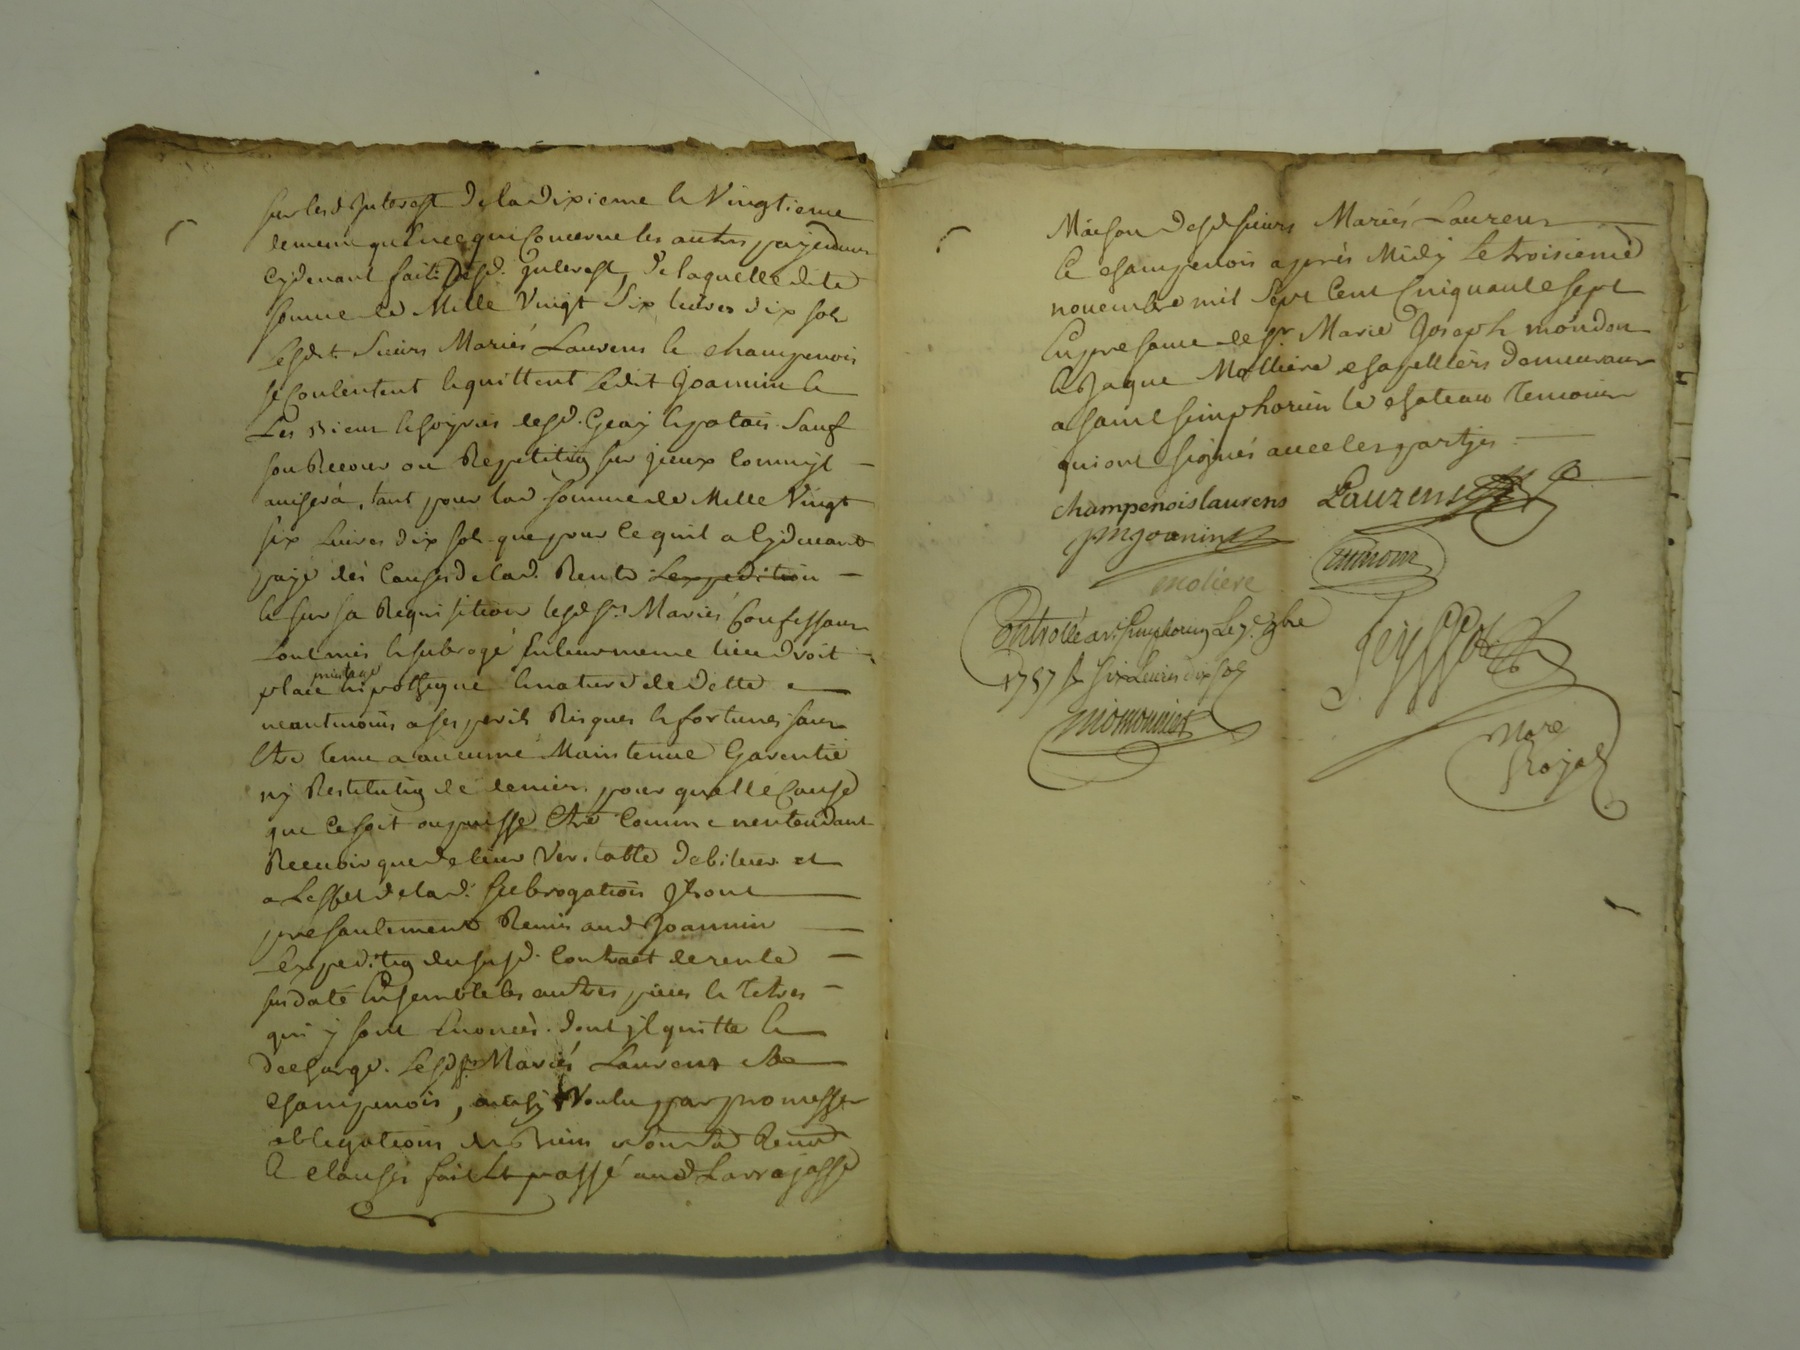 sur lesd Interest De la Dixieme le Vingtieme
de meme qu'En ce qui Concerne les autres payemens
Cydevant fait Desd. Interest, De laquelle dite
somme de Mille Vingt Six livres dix sols
Lesdt Sieurs Mariés Laurens le champenois
se Contentent le quittent Ledit Joannin le
Les sieur hoyries desd. Geay le patais Sauf
son Recour ou Repetition sur jceux Comm'jl
auisera, tant pour lad somme de Mille Vingt
six Liures dix sols que pour ce quil a Cydevant
payé dés Causes de lad. Rente Lexpedition
le sur sa Requisition lesd srs Mariés Confessant
Lont mis le subrogé En leur meme lieu droit
privilege
place hipotheque le nature de Dette
neantmoins a ses perils Risques le fortunes sans
Etre tenu a aucune Maintenue Garentie
ny Restitution de denier pour quelle Cause
que Ce soit ou puisse Etre Comme n'entendant
Receuoir que de leur Veritable debiteur et
a Leffet de lad. subrogation Jls ont
presentement Remis aud Joannin
Lexpedition du susd. Contract de rente
susdaté Ensemble les autres pieces le Titres
qui y sont Enoncés. dont jl quitte le
decharge. Lesd srs Mariés Laurens
champenois, ainsy Voulu par promesses
obligations de Biens
le clauses fait Et passé aud Larrajasse
Maison desd sieurs Mariés Laurens
le champenois aprés Midy Le troisieme
novembre mil Sept Cent Cinquante sept
En presance de sr. Marie Joseph mondon
le Jaque Molliere chapelliers demeurant
a saint simphorien le chateau Temoins
qui ont signés auec les partjes
champenois laurens Laurens
JM Joannin
moliere
Controllé a st. Simphorien Le 7e. 9bre
1757 R six Liures dix sols
Peyssel
Nore
Royal